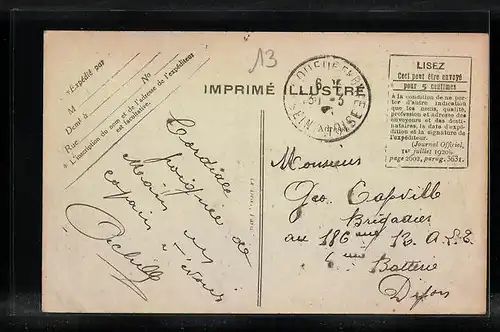 13
*Expédié par
M
No
Demt à
Rue
*L'inscription du nom et de l'adresse de l'expéditeur
est facultative.
IMPRIMÉ ILLUSTRÉ
LISEZ
Ceci peut être envoyé
pour 5 centimes
à la condition de ne por-
ter d'autre indication
que les nom, qualité,
profession et adresse des
envoyeurs et des desti-
nataires, la date d'expé-
dition et la signature de
l'expéditeur.
(Journal Officiel,
1er juillet 1920,
page 2602, parag. 3631.
Cordiale
poignée de
copain
Achille
Monsieur
Geo Capville
Brigadier
au 186eme R. A. L.
6eme Batterie
Dijon